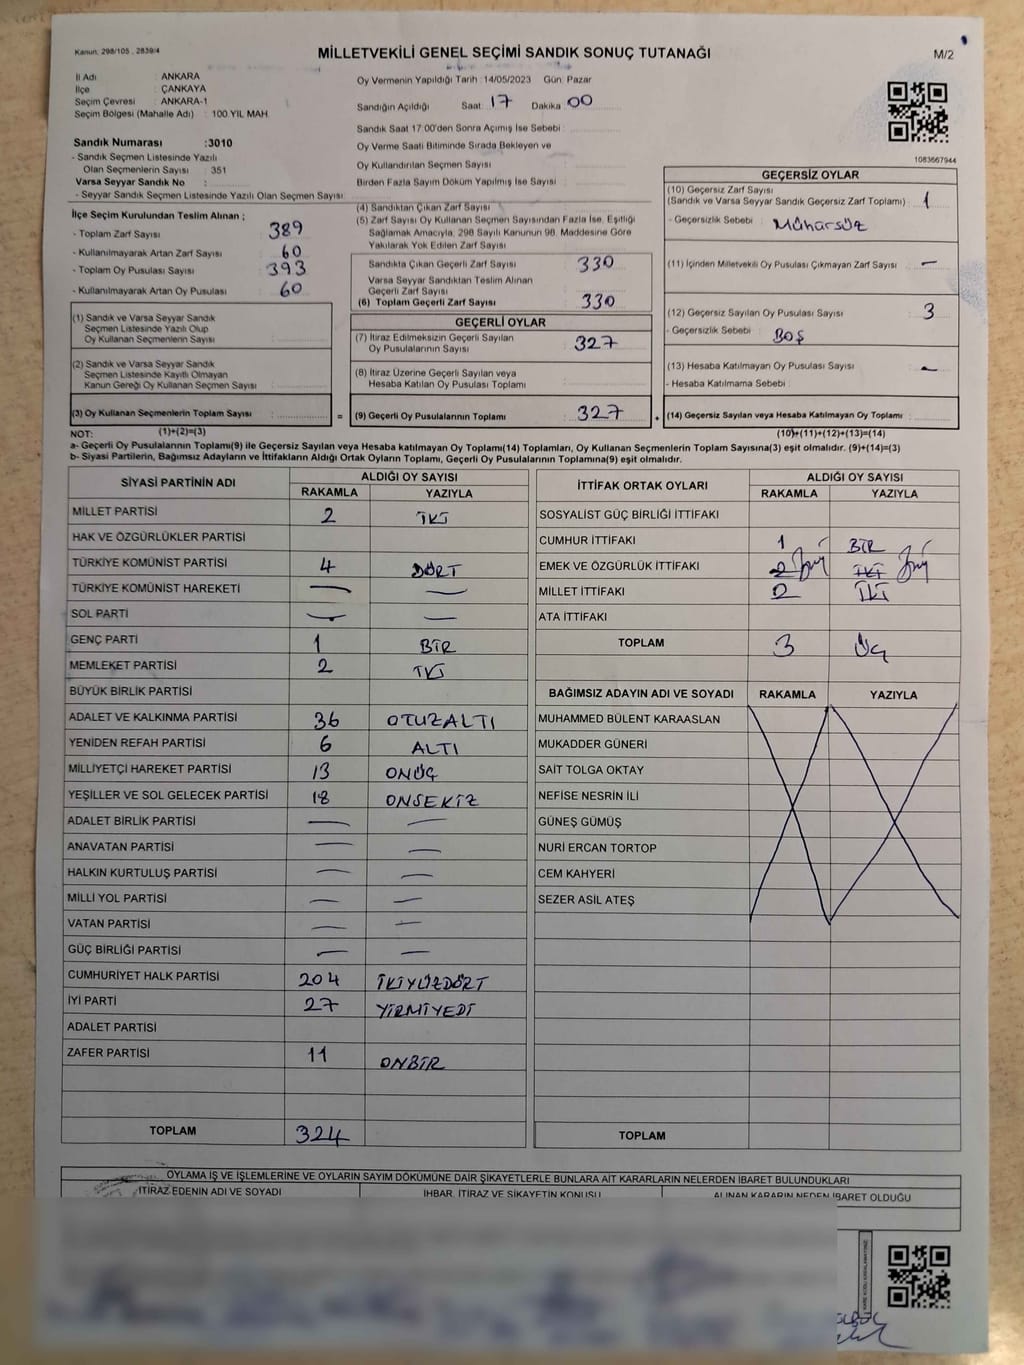 Kanun: 298/105 , 2839/4
MİLLETVEKİLİ GENEL SEÇİMİ SANDIK SONUÇ TUTANAĞI
M/2
İl Adı : ANKARA
İlçe : ÇANKAYA
Seçim Çevresi : ANKARA-1
Seçim Bölgesi (Mahalle Adı) : 100 YIL MAH.
Sandık Numarası :3010
- Sandık Seçmen Listesinde Yazılı
Olan Seçmenlerin Sayısı : 351
Varsa Seyyar Sandık No :
- Seyyar Sandık Seçmen Listesinde Yazılı Olan Seçmen Sayısı:
Oy Vermenin Yapıldığı Tarih :14/05/2023 Gün: Pazar
Sandığın Açıldığı Saat: 17 Dakika 00
Sandık Saat 17:00'den Sonra Açımış İse Sebebi :
Oy Verme Saati Bitiminde Sırada Bekleyen ve
Oy Kullandırılan Seçmen Sayısı :
Birden Fazla Sayım Döküm Yapılmış İse Sayısı :
1083667944
İlçe Seçim Kurulundan Teslim Alınan ;
- Toplam Zarf Sayısı : 389
- Kullanılmayarak Artan Zarf Sayısı : 60
- Toplam Oy Pusulası Sayısı : 393
- Kullanılmayarak Artan Oy Pusulası : 60
(1) Sandık ve Varsa Seyyar Sandık
Seçmen Listesinde Yazılı Olup
Oy Kullanan Seçmenlerin Sayısı :
(2) Sandık ve Varsa Seyyar Sandık
Seçmen Listesinde Kayıtlı Olmayan
Kanun Gereği Oy Kullanan Seçmen Sayısı :
(3) Oy Kullanan Seçmenlerin Toplam Sayısı :
(1)+(2)=(3)
(4) Sandıktan Çıkan Zarf Sayısı :
(5) Zarf Sayısı Oy Kullanan Seçmen Sayısından Fazla İse, Eşitliği
Sağlamak Amacıyla, 298 Sayılı Kanunun 98. Maddesine Göre
Yakılarak Yok Edilen Zarf Sayısı :
Sandıkta Çıkan Geçerli Zarf Sayısı : 330
Varsa Seyyar Sandıktan Teslim Alınan
Geçerli Zarf Sayısı :
(6) Toplam Geçerli Zarf Sayısı : 330
GEÇERLİ OYLAR
(7) İtiraz Edilmeksizin Geçerli Sayılan
Oy Pusulalarının Sayısı : 327
(8) İtiraz Üzerine Geçerli Sayılan veya
Hesaba Katılan Oy Pusulası Toplamı :
= (9) Geçerli Oy Pusulalarının Toplamı : 327
GEÇERSİZ OYLAR
(10) Geçersiz Zarf Sayısı
(Sandık ve Varsa Seyyar Sandık Geçersiz Zarf Toplamı) : 1
- Geçersizlik Sebebi : Mühürsüz
(11) İçinden Milletvekili Oy Pusulası Çıkmayan Zarf Sayısı : —
(12) Geçersiz Sayılan Oy Pusulası Sayısı : 3
- Geçersizlik Sebebi : BOŞ
(13) Hesaba Katılmayan Oy Pusulası Sayısı : —
- Hesaba Katılmama Sebebi :
(14) Geçersiz Sayılan veya Hesaba Katılmayan Oy Toplamı :
(10)+(11)+(12)+(13)=(14)
NOT:
a- Geçerli Oy Pusulalarının Toplamı(9) ile Geçersiz Sayılan veya Hesaba katılmayan Oy Toplamı(14) Toplamları, Oy Kullanan Seçmenlerin Toplam Sayısına(3) eşit olmalıdır. (9)+(14)=(3)
b- Siyasi Partilerin, Bağımsız Adayların ve İttifakların Aldığı Ortak Oyların Toplamı, Geçerli Oy Pusulalarının Toplamına(9) eşit olmalıdır.
SİYASİ PARTİNİN ADI
ALDIĞI OY SAYISI
RAKAMLA YAZIYLA
MİLLET PARTİSİ 2 İKİ
HAK VE ÖZGÜRLÜKLER PARTİSİ
TÜRKİYE KOMÜNİST PARTİSİ 4 DÖRT
TÜRKİYE KOMÜNİST HAREKETİ — —
SOL PARTİ — —
GENÇ PARTİ 1 BİR
MEMLEKET PARTİSİ 2 İKİ
BÜYÜK BİRLİK PARTİSİ
ADALET VE KALKINMA PARTİSİ 36 OTUZALTI
YENİDEN REFAH PARTİSİ 6 ALTI
MİLLİYETÇİ HAREKET PARTİSİ 13 ONÜÇ
YEŞİLLER VE SOL GELECEK PARTİSİ 18 ONSEKİZ
ADALET BİRLİK PARTİSİ — —
ANAVATAN PARTİSİ — —
HALKIN KURTULUŞ PARTİSİ — —
MİLLİ YOL PARTİSİ — —
VATAN PARTİSİ — —
GÜÇ BİRLİĞİ PARTİSİ — —
CUMHURİYET HALK PARTİSİ 204 İKİYÜZDÖRT
İYİ PARTİ 27 YİRMİYEDİ
ADALET PARTİSİ
ZAFER PARTİSİ 11 ONBİR
TOPLAM 324
İTTİFAK ORTAK OYLARI
ALDIĞI OY SAYISI
RAKAMLA YAZIYLA
SOSYALİST GÜÇ BİRLİĞİ İTTİFAKI
CUMHUR İTTİFAKI 1 BİR
EMEK VE ÖZGÜRLÜK İTTİFAKI 2 İKİ
MİLLET İTTİFAKI 2 İKİ
ATA İTTİFAKI
TOPLAM 3 ÜÇ
BAĞIMSIZ ADAYIN ADI VE SOYADI RAKAMLA YAZIYLA
MUHAMMED BÜLENT KARAASLAN
MUKADDER GÜNERİ
SAİT TOLGA OKTAY
NEFİSE NESRİN İLİ
GÜNEŞ GÜMÜŞ
NURİ ERCAN TORTOP
CEM KAHYERİ
SEZER ASİL ATEŞ
TOPLAM
OYLAMA İŞ VE İŞLEMLERİNE VE OYLARIN SAYIM DÖKÜMÜNE DAİR ŞİKAYETLERLE BUNLARA AİT KARARLARIN NELERDEN İBARET BULUNDUKLARI
İTİRAZ EDENİN ADI VE SOYADI
İHBAR, İTİRAZ VE ŞİKAYETİN KONUSU
ALINAN KARARIN NEDEN İBARET OLDUĞU